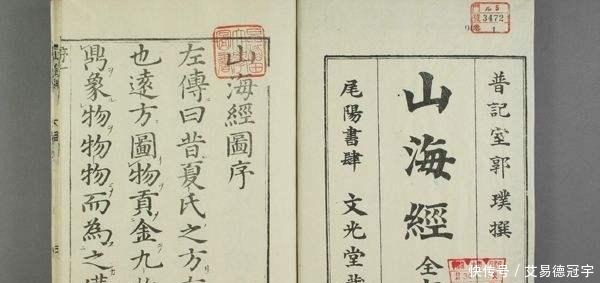 門 ル5
號 3472
卷 1
普記室郭璞撰
山海經 全
尾陽書肆 文光堂
山海經圖序
左傳曰昔夏氏之方
也遠方圖物貢金九
象物物物而為之
序一
快传号/艾易德冠宇